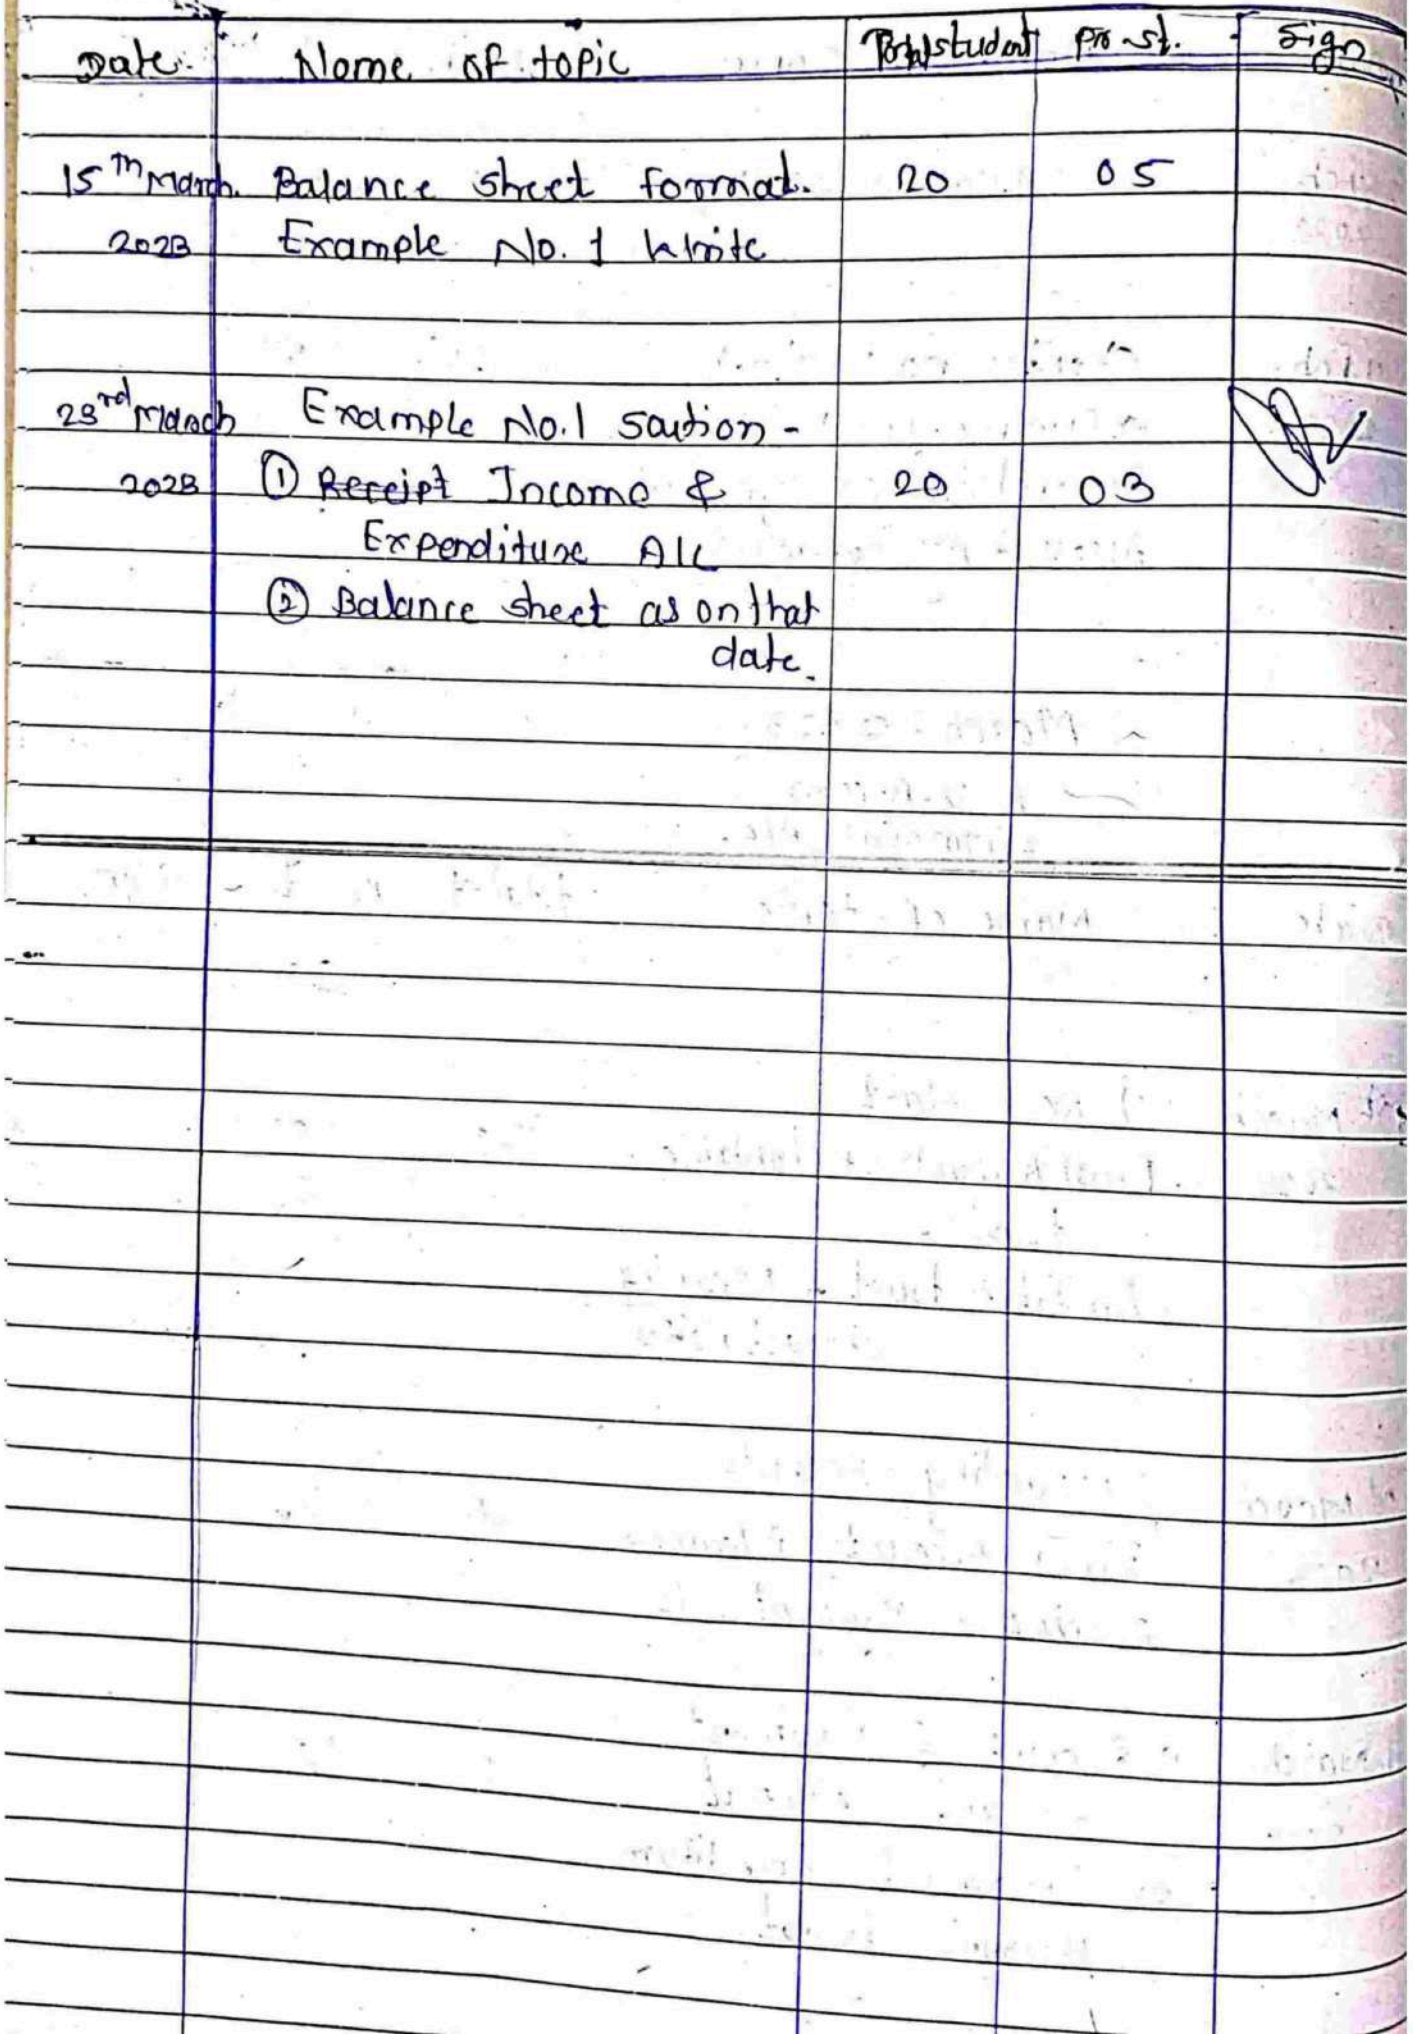 Date Name of topic Total student pr. st. Sign
15th March. Balance sheet format. 20 05
2023 Example No. 1 Write
23rd March Example No.1 Soution -
2023 ① Receipt Income & 20 03
Expenditure A/c
② Balance sheet as on that
date.